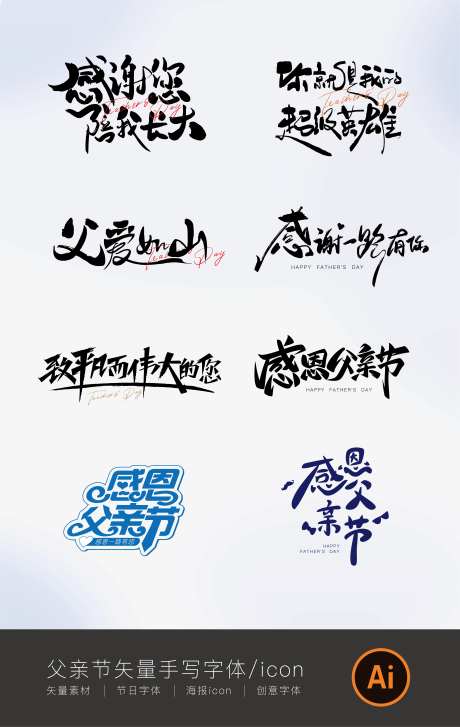 感谢您
陪我长大
Teacher's Day
你就是我的
超级英雄
Teacher's Day
父爱如山
Teacher's Day
感谢一路有你
HAPPY FATHER'S DAY
致平凡而伟大的您
Teacher's Day
感恩父亲节
HAPPY FATHER'S DAY
感恩
父亲节
感恩一路有您
感恩父亲节
HAPPY
FATHER'S DAY
父亲节矢量手写字体/icon
矢量素材 | 节日字体 | 海报icon | 创意字体
Ai